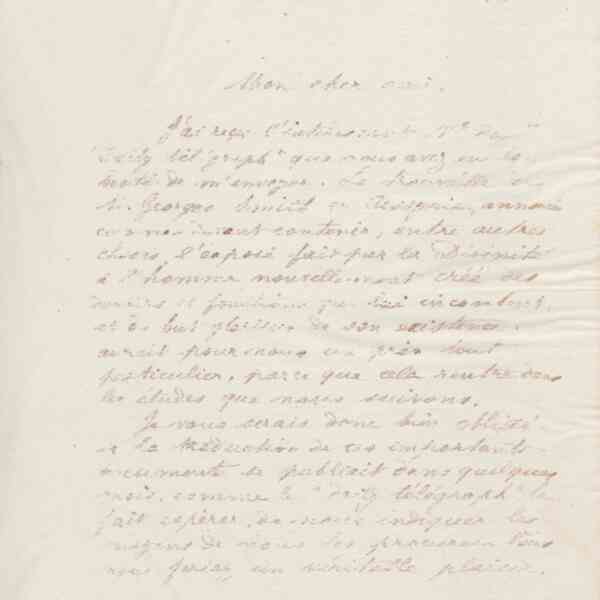 Mon cher ami.
J'ai reçu l'intéressant N° du
"Daily télégraph" que vous avez eu la
bonté de m'envoyer. La trouvaille de
M. Georges Smith en Assyrie, annoncé
comme devant contenir, entre autres
choses, l'exposé fait par la Divinité
à l'homme nouvellement créé des
devoirs et fonctions qui lui incombent,
et du but glorieux de son existence,
aurait pour nous un prix tout
particulier, parce que cela rentre dans
les études que nous suivons.
Je vous serais donc bien obligé
si la traduction de ces importants
documents se publiait dans quelques
mois, comme le "daily télégraph" le
fait espérer, de nous indiquer les
moyens de nous les procurer. Vous
nous feriez un véritable plaisir.